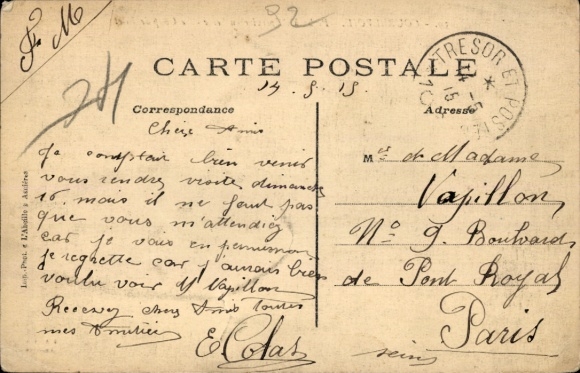 F. M
32
CARTE POSTALE
TRESOR ET POSTES
*
14-5
15
14.5.15
Correspondance
Adresse
Chers Amis
Je comptais bien venir
vous rendre visite dimanche
16. mais il ne faut pas
que vous m'attendiez
car je vais en permission
je regrette car j'aurais bien
voulu voir Mr Vapillon
Recevez chers Amis toutes
mes Amitiés
E. Colas
Mr et Madame
Vapillon,
No 9. Boulevard
de Pont Royal
Paris
Seine
Imp.-Phot. "L'Abeille" à Asnières